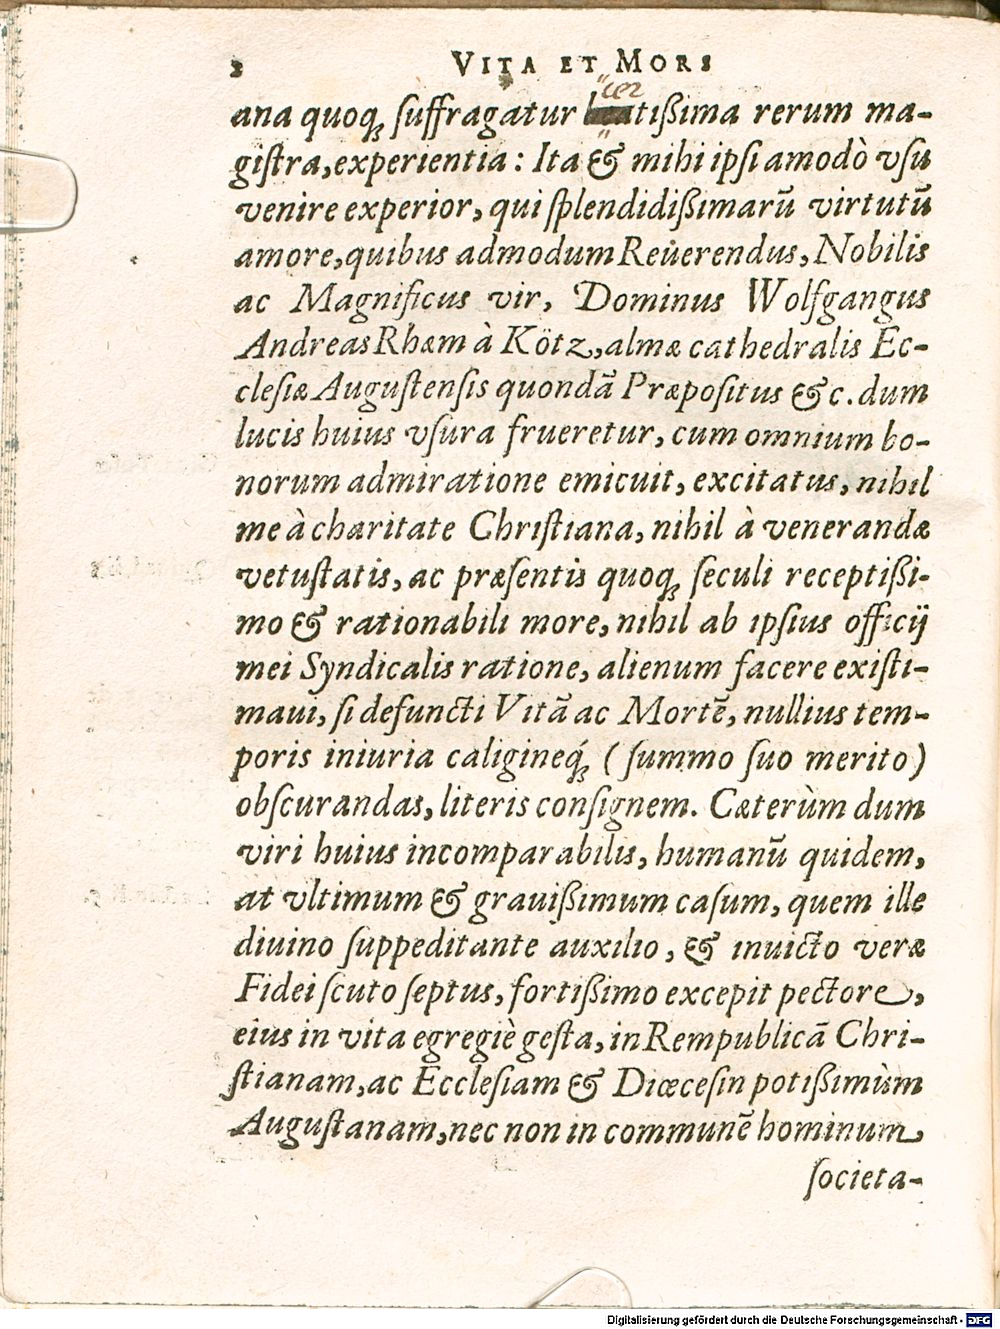 2 VITA ET MORS
cer
ana quoq́ꝫ ſuffragatur beatißima rerum ma-
giſtra, experientia: Ita & mihi ipſi amodò vſu
venire experior, qui ſplendidißimarũ virtutũ
amore, quibus admodum Reuerendus, Nobilis
ac Magnificus vir, Dominus Wolfgangus
Andreas Rhæm à Kötz, almæ cathedralis Ec-
cleſiæ Auguſtenſis quondã Præpoſitus &c. dum
lucis huius vſura frueretur, cum omnium bo-
norum admiratione emicuit, excitatus, nihil
me à charitate Chriſtiana, nihil à venerandæ
vetuſtatis, ac præſentis quoqꝫ ſeculi receptißi-
mo & rationabili more, nihil ab ipſius officij
mei Syndicalis ratione, alienum facere exiſti-
maui, ſi defuncti Vitã ac Mortẽ, nullius tem-
poris iniuria caligineq́ꝫ (ſummo ſuo merito)
obſcurandas, literis conſignem. Cæterùm dum
viri huius incomparabilis, humanũ quidem,
at vltimum & grauißimum caſum, quem ille
diuino ſuppeditante auxilio, & inuicto veræ
Fidei ſcuto ſeptus, fortißimo excepit pectore,
eius in vita egregiè geſta, in Rempublicã Chri-
ſtianam, ac Eccleſiam & Diœceſin potißimùm
Auguſtanam, nec non in communẽ hominum
ſocieta-
Digitalisierung gefördert durch die Deutsche Forschungsgemeinschaft - DFG